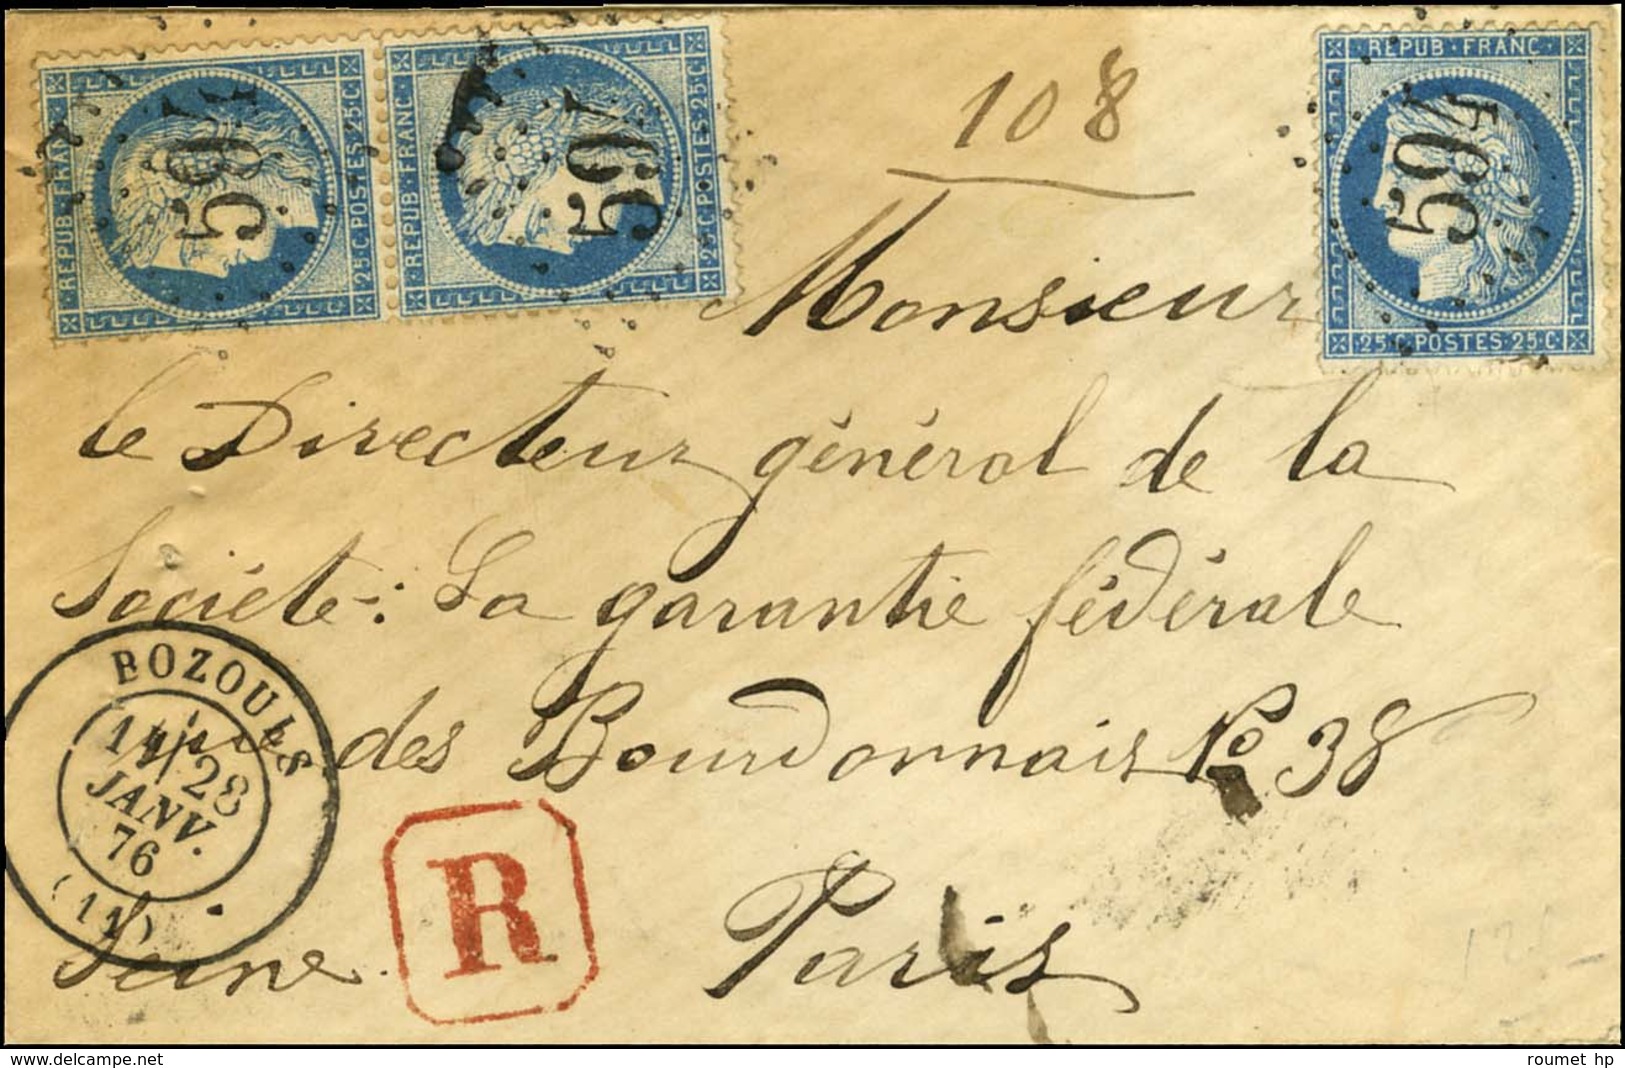 REPUB·FRANC·
25·C·POSTES·25·C
594
REPUB·FRANC·
25·C·POSTES·25·C
594
108
REPUB·FRANC·
25·C·POSTES·25·C
594
Monsieur
le Directeur général de la
Société: La garantie fédérale
des Bourdonnais No 38
Paris
Seine
BOZOULS
28
JANV.
76
(11)
R
http://www.delcampe.net
roumet hp